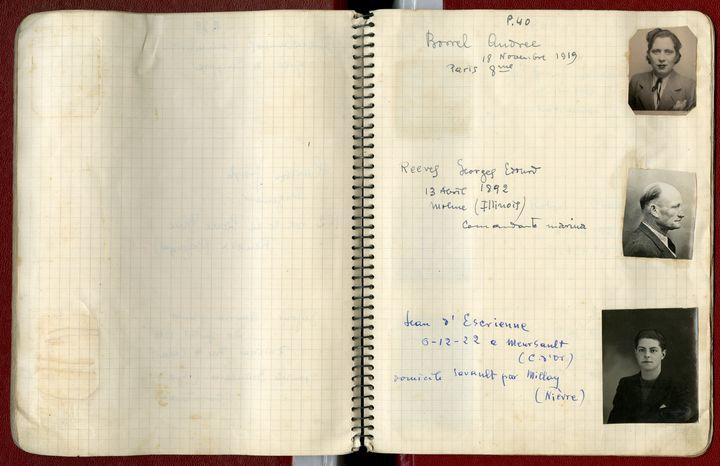 P.40
Borrel Andree
18 Novembre 1919
Paris 8me
Reeves Georges Edouard
13 Avril 1892
Moline (Illinois)
Comandante marina
Jean d'Escrienne
6-12-22 a Meursault
(C d'Or)
domicile Savault par Millay
(Nièvre)